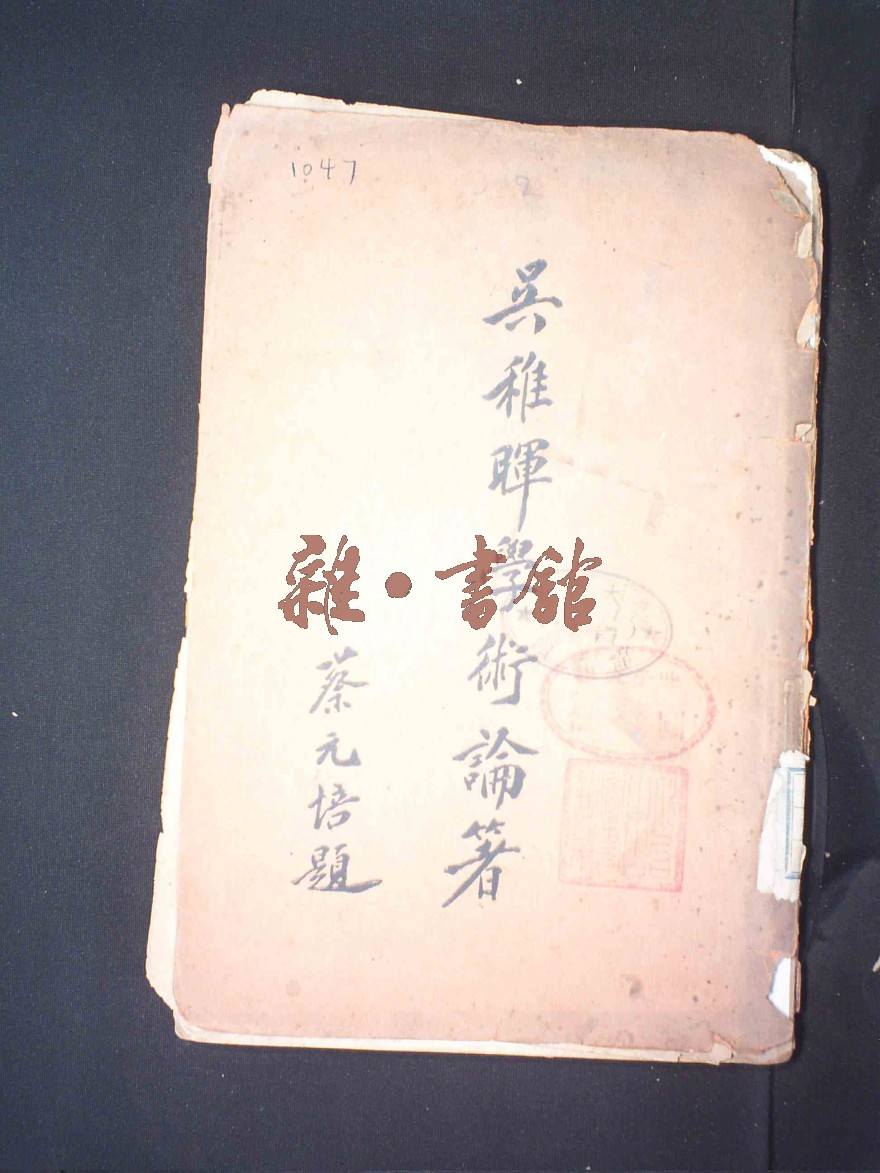 1047
吳稚暉學術論著
蔡元培題
雜·書館